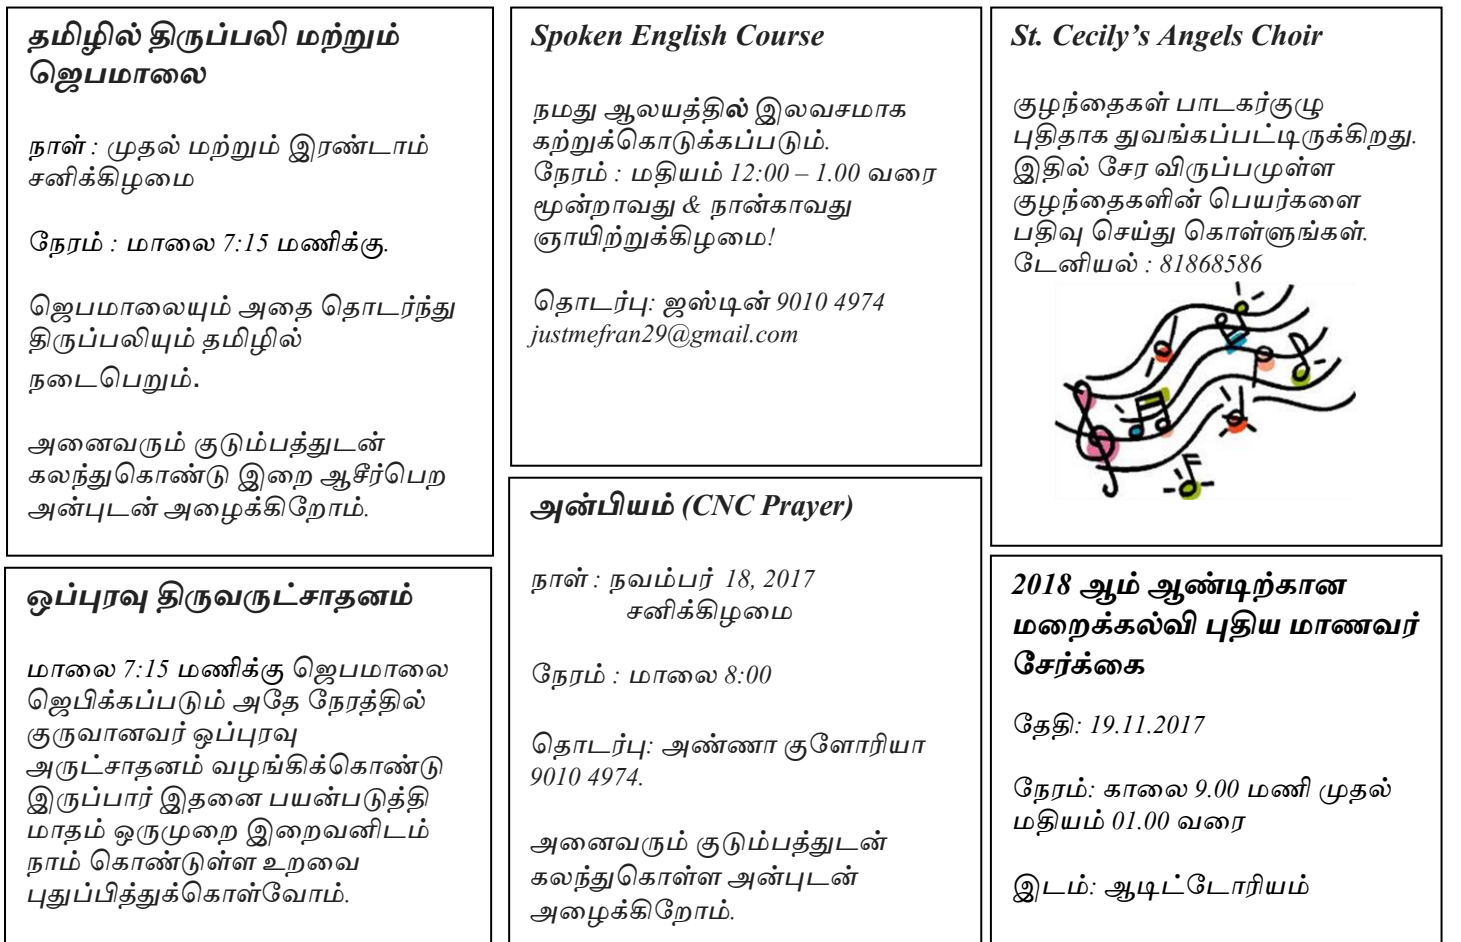 தமிழில் திருப்பலி மற்றும்
ஜெபமாலை
நாள் : முதல் மற்றும் இரண்டாம்
சனிக்கிழமை
நேரம் : மாலை 7:15 மணிக்கு.
ஜெபமாலையும் அதை தொடர்ந்து
திருப்பலியும் தமிழில்
நடைபெறும்.
அனைவரும் குடும்பத்துடன்
கலந்துகொண்டு இறை ஆசீர்பெற
அன்புடன் அழைக்கிறோம்.
ஒப்புரவு திருவருட்சாதனம்
மாலை 7:15 மணிக்கு ஜெபமாலை
ஜெபிக்கப்படும் அதே நேரத்தில்
குருவானவர் ஒப்புரவு
அருட்சாதனம் வழங்கிக்கொண்டு
இருப்பார் இதனை பயன்படுத்தி
மாதம் ஒருமுறை இறைவனிடம்
நாம் கொண்டுள்ள உறவை
புதுப்பித்துக்கொள்வோம்.
Spoken English Course
நமது ஆலயத்தில் இலவசமாக
கற்றுக்கொடுக்கப்படும்.
நேரம் : மதியம் 12:00 – 1.00 வரை
மூன்றாவது & நான்காவது
ஞாயிற்றுக்கிழமை!
தொடர்பு: ஜஸ்டின் 9010 4974
justmefran29@gmail.com
அன்பியம் (CNC Prayer)
நாள் : நவம்பர் 18, 2017
சனிக்கிழமை
நேரம் : மாலை 8:00
தொடர்பு: அண்ணா குளோரியா
9010 4974.
அனைவரும் குடும்பத்துடன்
கலந்துகொள்ள அன்புடன்
அழைக்கிறோம்.
St. Cecily’s Angels Choir
குழந்தைகள் பாடகர்குழு
புதிதாக துவங்கப்பட்டிருக்கிறது.
இதில் சேர விருப்பமுள்ள
குழந்தைகளின் பெயர்களை
பதிவு செய்து கொள்ளுங்கள்.
டேனியல் : 81868586
2018 ஆம் ஆண்டிற்கான
மறைக்கல்வி புதிய மாணவர்
சேர்க்கை
தேதி: 19.11.2017
நேரம்: காலை 9.00 மணி முதல்
மதியம் 01.00 வரை
இடம்: ஆடிட்டோரியம்